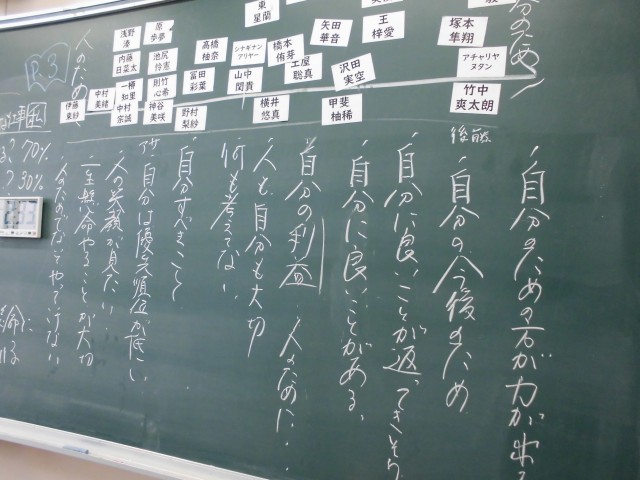 自分のため
・自分のための方が力が出る
後藤
・自分の今後のため
・自分に良いことが返ってきそう
・自分に良いことがある。
自分の利益
人のために・・
・人も自分も大切
何も考えてない
・自分すべきこと
・自分は優先順位が低い
・人の笑顔が見たい
・一生懸命やることが大切
・人のためでないとやっていけない
人のため
P.3
70%
30%
東
星蘭
矢田
華音
王
梓愛
塚本
隼翔
アチャリヤ
ヌタン
竹中
爽太朗
浅野
湊
原
歩夢
高橋
柚奈
シナギナン
アリヤー
橋本
侑芽
土屋
聡真
沢田
実空
内藤
日菜太
池尻
怜憲
冨田
彩葉
山中
閏貴
伊藤
来紗
中村
美緒
一橋
知里
中村
宗誠
神谷
美咲
野村
梨紗
横井
悠真
甲斐
柚稀